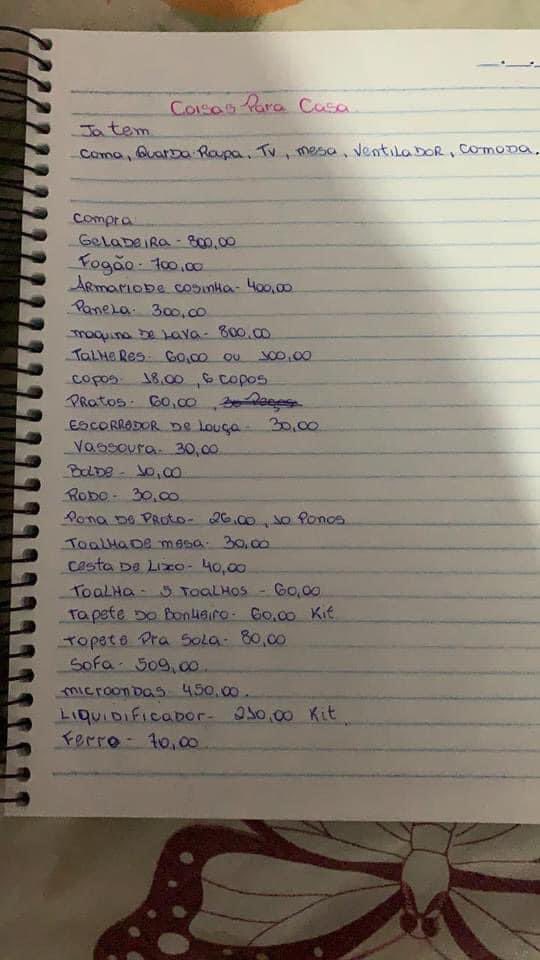 Coisas Para Casa
Ja tem
Cama, Guarda-Roupa, Tv, mesa, Ventilador, Comoda.
Compra
Geladeira - 800,00
Fogão - 700,00
Armario de cosinha - 400,00
Panela - 300,00
maquina de lava - 800,00
Talheres - 60,00 ou 100,00
Copos - 18,00, 6 copos
Pratos - 60,00,
Escorrador de louça - 30,00
Vassoura - 30,00
Balde - 10,00
Rodo - 30,00
Pana de Prato - 26,00, 10 Panos
Toalha de mesa - 30,00
Cesta de Lixo - 40,00
Toalha - 5 Toalhas - 60,00
Tapete do Banheiro - 60,00 Kit
Tapete Pra Sala - 80,00
Sofa - 509,00
microondas 450,00.
Liquidificador - 210,00 Kit
Ferro - 70,00